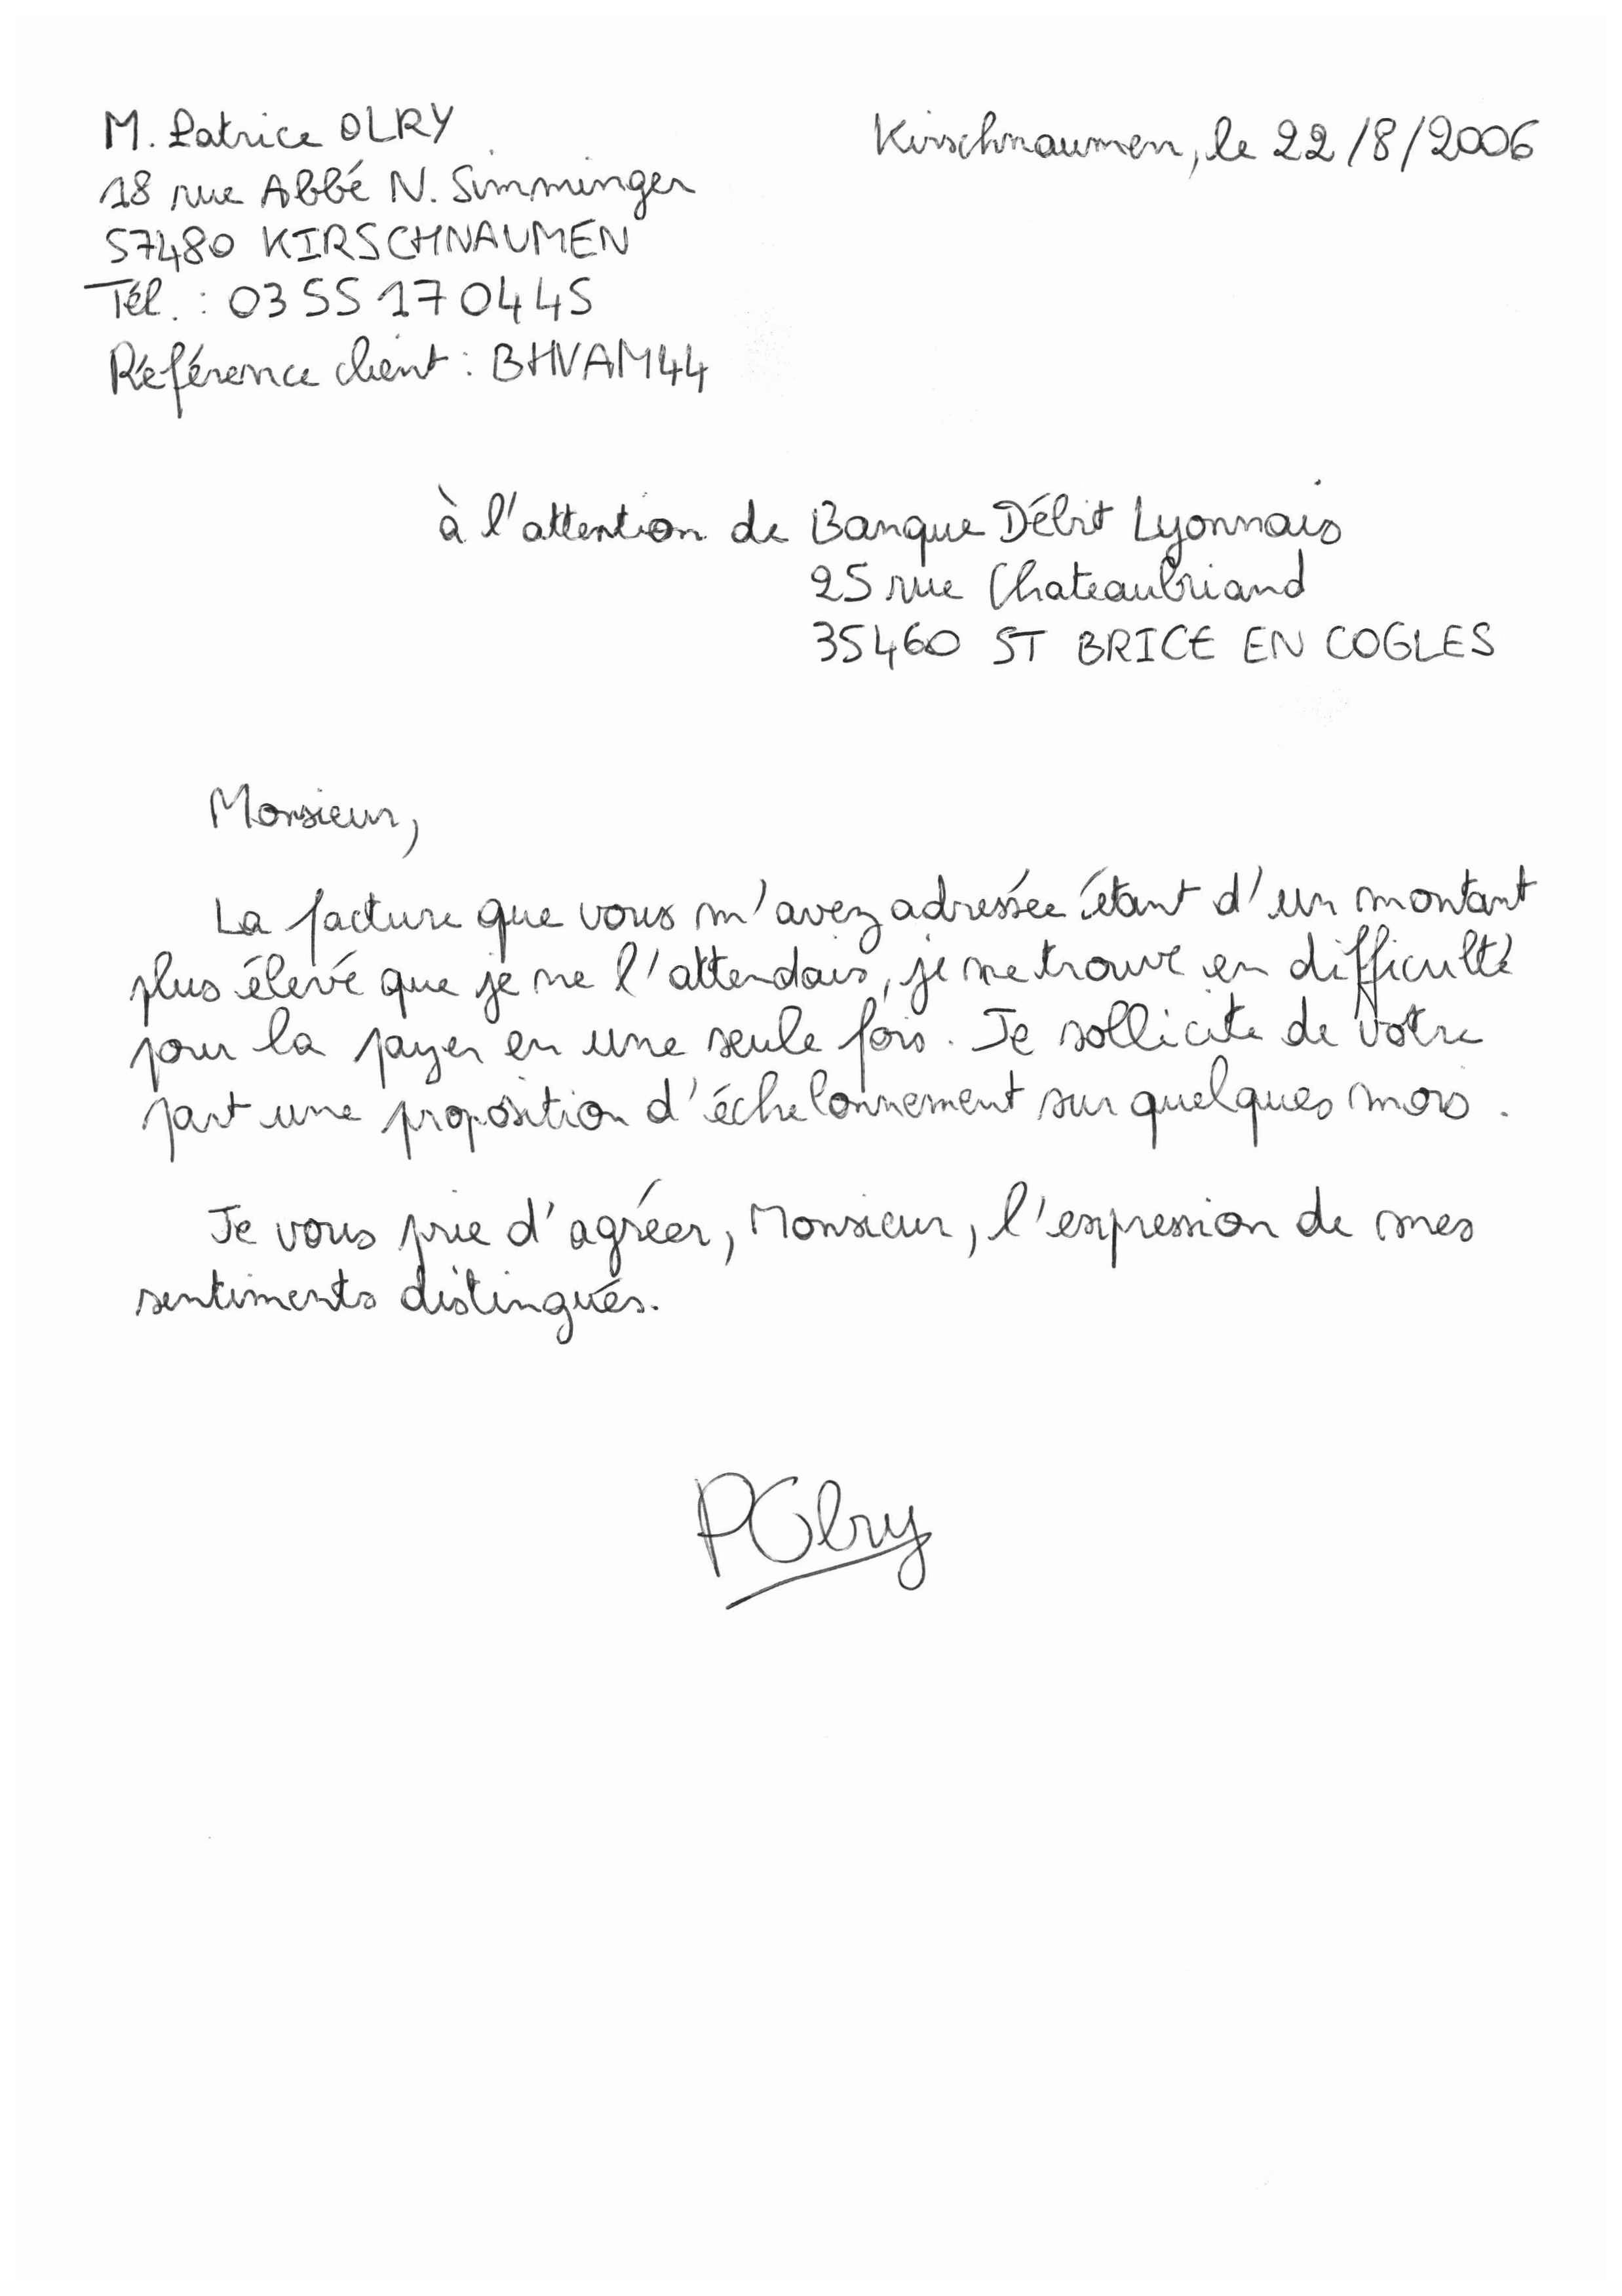 M. Patrice OLRY
18 rue Abbé N. Simminger
57480 KIRSCHNAUMEN
Tél. : 03 55 17 04 45
Référence client : BHVAM44
Kirschnaumen, le 22/8/2006
à l'attention de Banque Débit Lyonnais
25 rue Chateaubriand
35460 ST BRICE EN COGLES
Monsieur,
La facture que vous m'avez adressée étant d'un montant
plus élevé que je ne l'attendais, je me trouve en difficulté
pour la payer en une seule fois. Je sollicite de votre
part une proposition d'échelonnement sur quelques mois.
Je vous prie d'agréer, Monsieur, l'expression de mes
sentiments distingués.
POlry